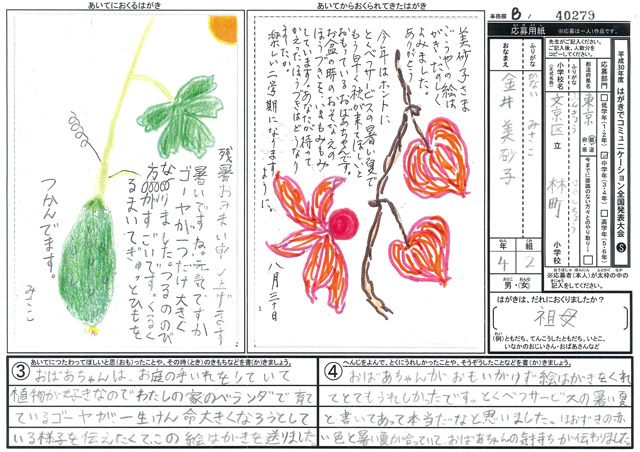 あいてにおくるはがき
残暑おみまい申し上げます
暑いですね。元気ですか
ゴーヤが一つだけ大きく
なりました。つるののび
方がすごいです。くるくる
まいてぎゅっとひもを
つかんでます。
みさこ
あいてからおくられてきたはがき
美砂子さま
ゴーヤの絵は
がきうれしく
よみました。
ありがとう
今年はホントに
とくべつサービスの暑い夏で
もう早く秋が来てほしいと
おもっているおばあちゃんです。
お盆の時のおそなえの
ほうずきを、まもみも
しています。あなたが持って
かえったほうずきはどうなり
ましたか。
楽しい二学期になりますように。
八月三十日
事務欄 B 40279
応募用紙
※応募は一人1作品です。
先生がご記入ください。
ご記入後、人数分を
コピーしてください。
平成30年度 はがきでコミュニケーション全国発表大会 S
応募部門
低学年(1・2年)
中学年(3・4年)
高学年(5・6年)
今までに面識のない方々とのやり取り
都道府県名
東京
都道府・県
小学校名
(正式名称)
文京区 立 林町 小学校
ふりがな
かない みさこ
おなまえ
金井 美砂子
年 4
組 2
男・女
※応募者(本人)が太枠の中の
記入をしてください。
はがきは、だれにおくりましたか?
祖母
(例)ともだち、てんこうしたともだち、いとこ、
いなかのおじいさん・おばあさんなど
③ あいてにつたわってほしいと思(おも)ったことや、その時(とき)のきもちなどを書(か)きましょう。
おばあちゃんは、お庭の手いれをしていて
植物が好きなのでわたしの家のベランダで育て
ているゴーヤが一生けん命大きくなろうとして
いる様子を伝えたくてこの絵はがきを送りました
④ へんじをよんで、とくにうれしかったことや、そうぞうしたことなどを書(か)きましょう。
おばあちゃんがおもいがけず絵はがきをくれ
てとてもうれしかったです。とくべつサービスの暑い夏
と書いてあって本当だなと思いました。ほおずきの赤
い色と暑い夏が合っていて、おばあちゃんの気持ちが伝わりました